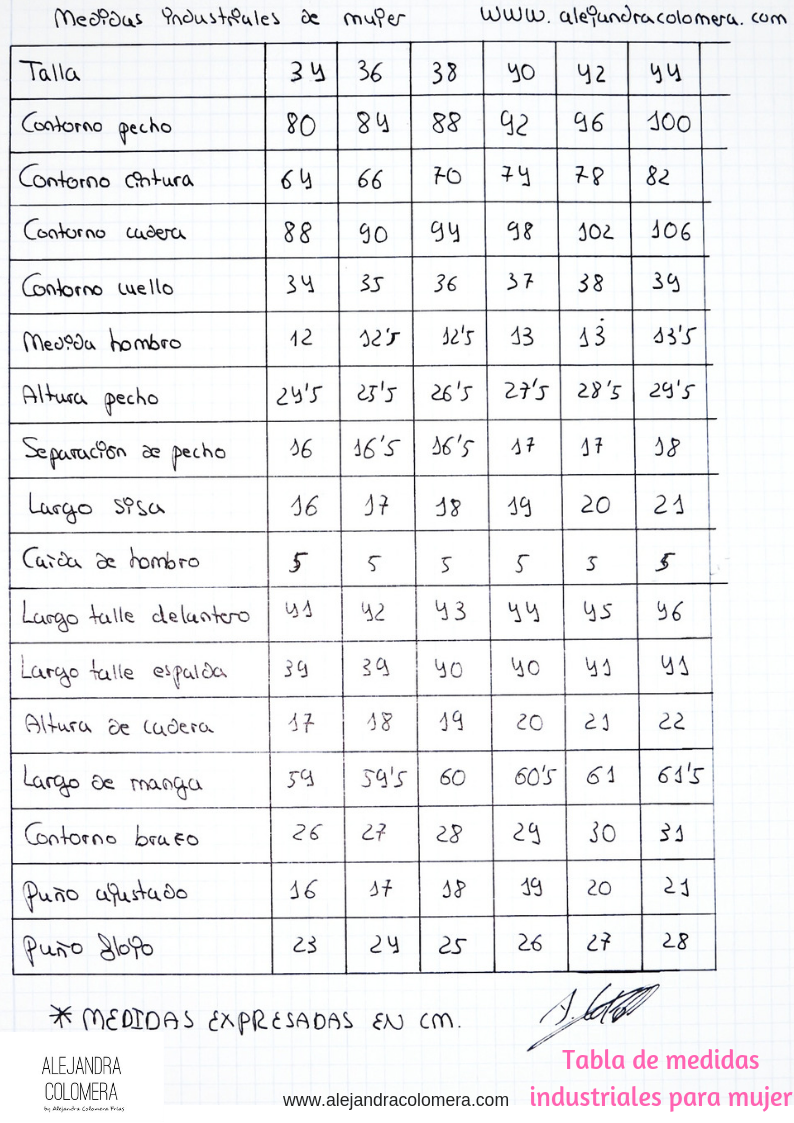 Medidas industriales de mujer www.alejandracolomera.com
Talla 34 36 38 40 42 44
Contorno pecho 80 84 88 92 96 100
Contorno cintura 64 66 70 74 78 82
Contorno cadera 88 90 94 98 102 106
Contorno cuello 34 35 36 37 38 39
Medida hombro 12 12'5 12'5 13 13 13'5
Altura pecho 24'5 25'5 26'5 27'5 28'5 29'5
Separación de pecho 16 16'5 16'5 17 17 18
Largo sisa 16 17 18 19 20 21
Caida de hombro 5 5 5 5 5 5
Largo talle delantero 41 42 43 44 45 46
Largo talle espalda 39 39 40 40 41 41
Altura de cadera 17 18 19 20 21 22
Largo de manga 59 59'5 60 60'5 61 61'5
Contorno brazo 26 27 28 29 30 31
Puño ajustado 16 17 18 19 20 21
Puño flojo 23 24 25 26 27 28
* MEDIDAS EXPRESADAS EN CM.
ALEJANDRA
COLOMERA
by Alejandra Colomera Frías
www.alejandracolomera.com
Tabla de medidas
industriales para mujer